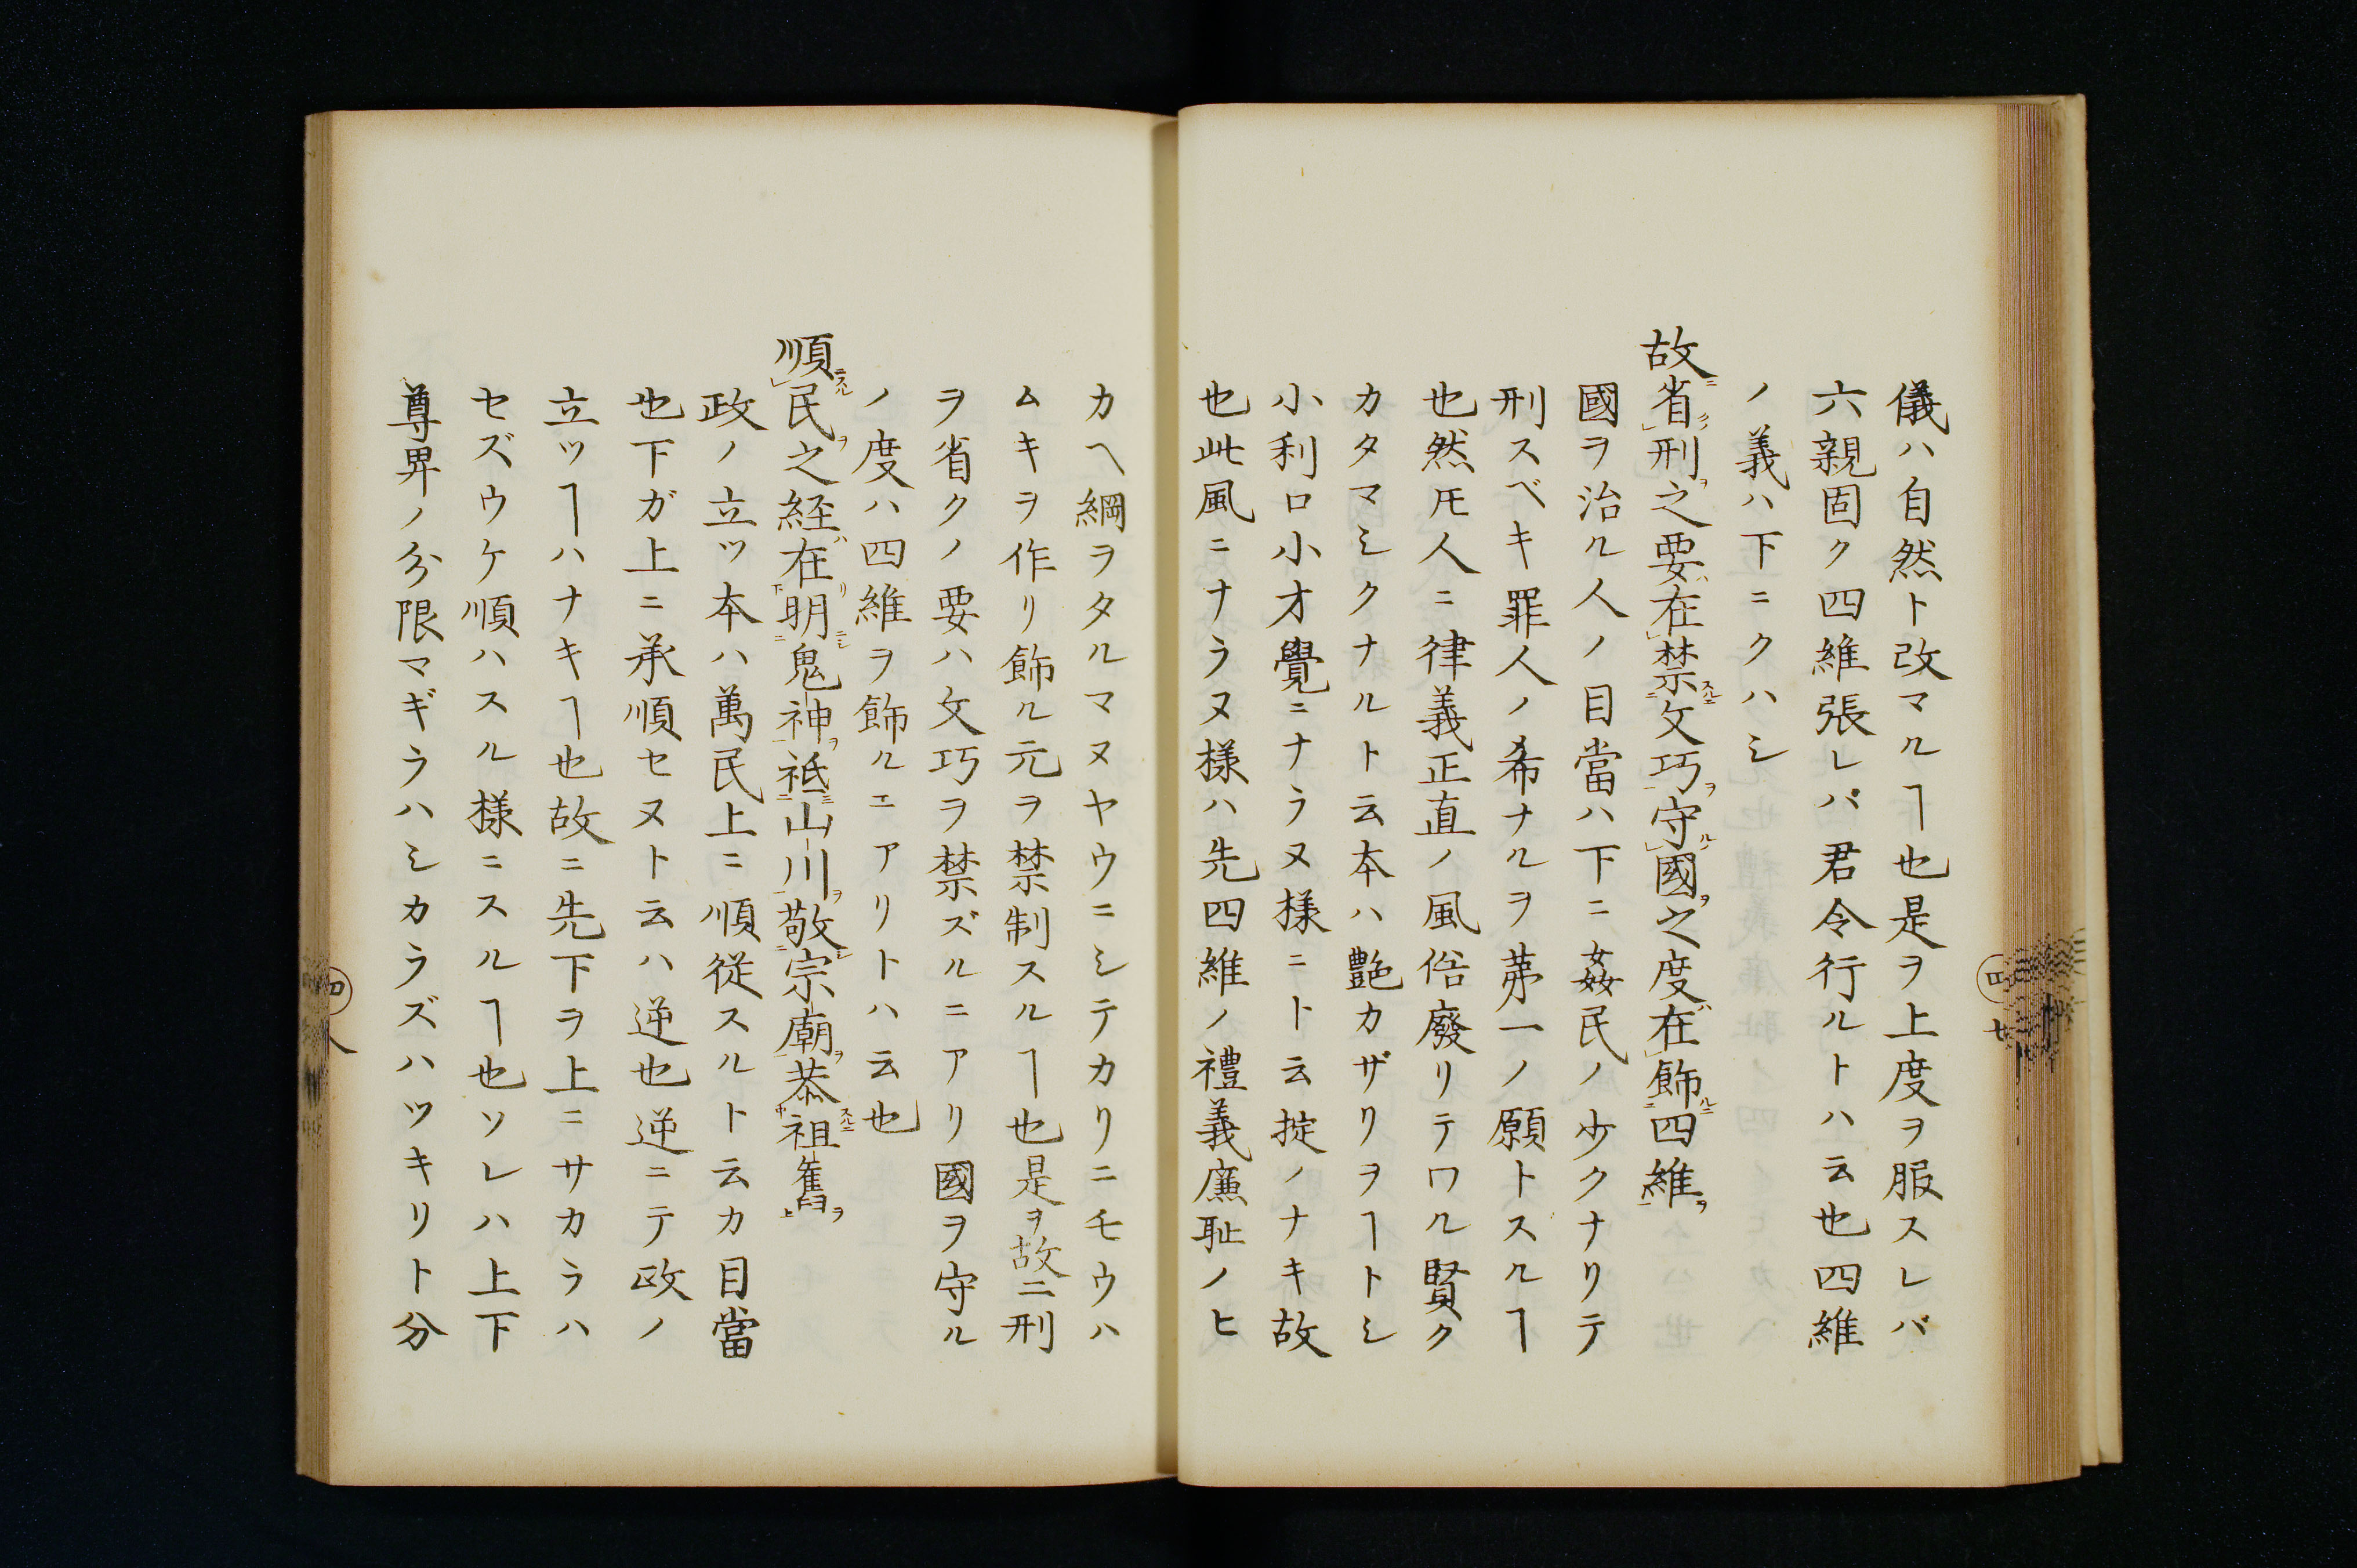 儀ハ自然ト改マルヿ也是ヲ上度ヲ服スレバ
六親固ク四維張レバ君令行ルトハ云也四維
ノ義ハ下ニクハシ
故ニ省クノ刑ヲ之要ハ在禁スルニ文巧ヲ守ル國ヲ之度ハ在飾ルニ四維ヲ
國ヲ治ル人ノ目當ハ下ニ姦民ノ少クナリテ
刑スベキ罪人ノ希ナルヲ苐一ノ願トスルヿ
也然𪜈人ニ律義正直ノ風俗廢リテワル賢ク
カタマシクナルト云本ハ艶カザリヲヿトシ
小利口小才覺ニナラヌ様ニト云掟ノナキ故
也此風ニナラヌ様ハ先四維ノ禮義廉耻ノヒ
カヘ綱ヲタルマヌヤウニシテカリニモウハ
ムキヲ作リ飾ル元ヲ禁制スルヿ也是ヲ故ニ刑
ヲ省クノ要ハ文巧ヲ禁ズルニアリ國ヲ守ル
ノ度ハ四維ヲ飾ルニアリトハ云也
順ニスル民ヲ之経ハ在リ下明ニシ二鬼神ヲ一祗二ミ山川ヲ一敬二シ宗廟ヲ一恭中スルニ祖舊ヲ上
政ノ立ツ本ハ萬民上ニ順従スルト云カ目當
也下ガ上ニ承順セヌト云ハ逆也逆ニテ政ノ
立ツヿハナキヿ也故ニ先下ヲ上ニサカラハ
セズウケ順ハスル様ニスルヿ也ソレハ上下
尊畀ノ分限マギラハシカラズハツキリト分
四
四
八